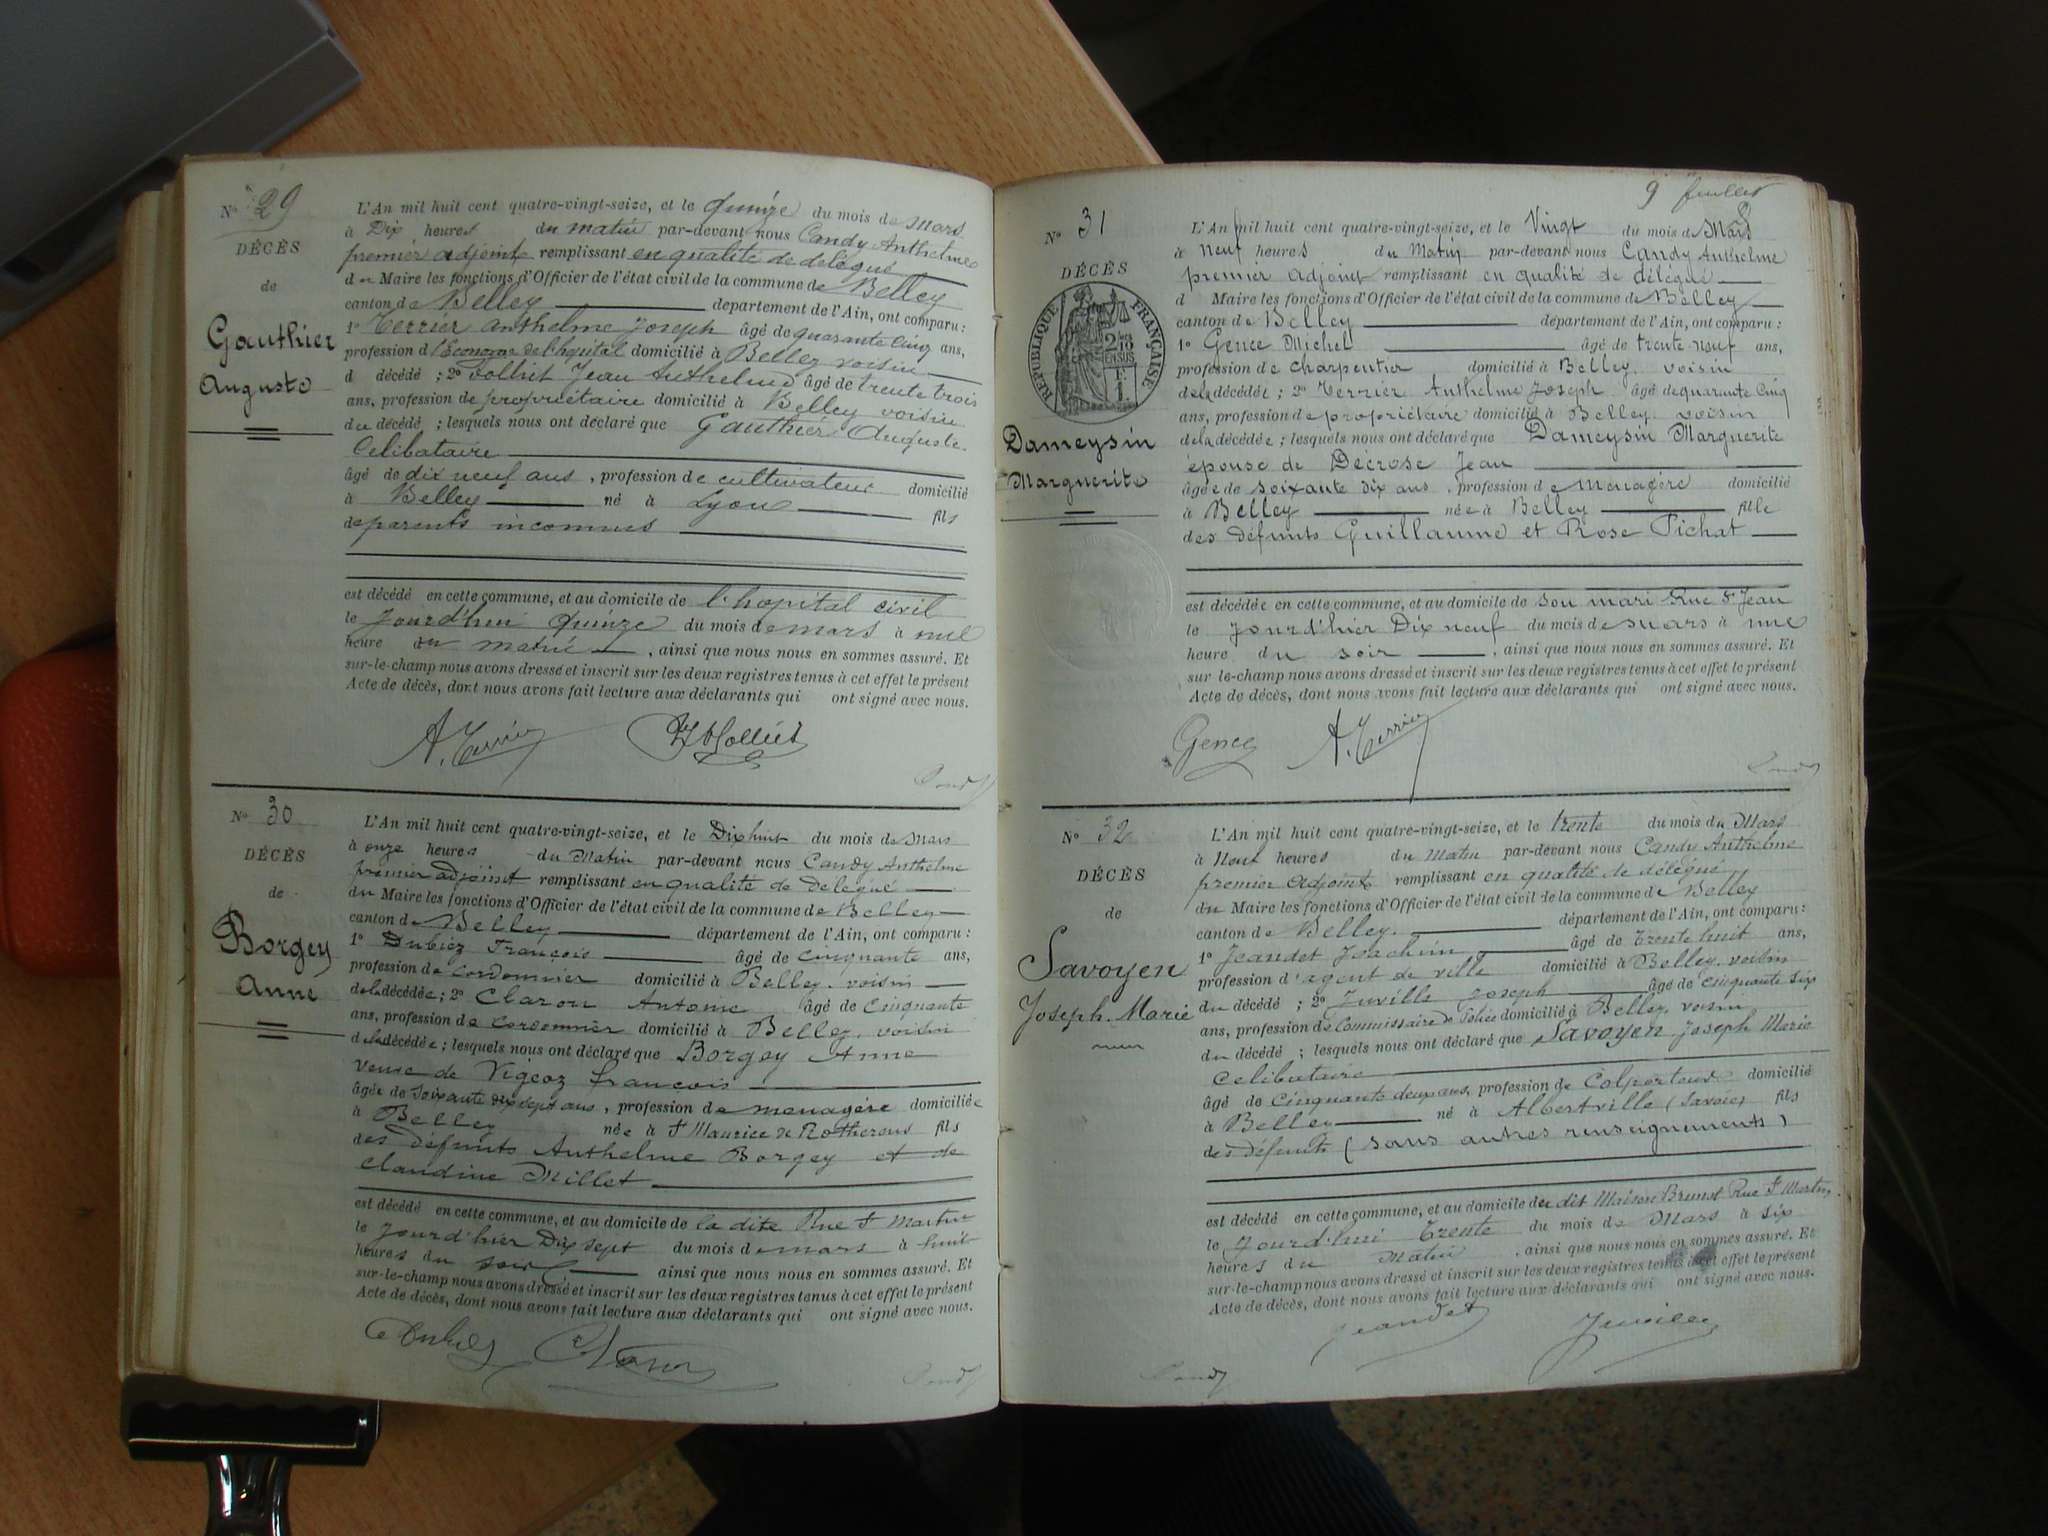 N° 29
DÉCÈS
de
Gauthier
Auguste
L'An mil huit cent quatre-vingt-seize, et le Quinze du mois de Mars
à Dix heures du matin par-devant nous Candy Anthelme
premier adjoint remplissant en qualité de délégué
du Maire les fonctions d'Officier de l'état civil de la commune de Belley
canton de Belley département de l'Ain, ont comparu :
1° Terrier Anthelme Joseph âgé de quarante cinq ans,
profession d l'Econome de l'hopital domicilié à Belley voisin
d décédé ; 2° Jean Anthelme âgé de trente trois
ans, profession de propriétaire domicilié à Belley voisin
du décédé ; lesquels nous ont déclaré que Gauthier Auguste
Celibataire
âgé de dix neuf ans , profession de cultivateur domicilié
à Belley né à Lyon fils
de parents inconnus
est décédé en cette commune, et au domicile de l'hopital civil
le Jourd'hui Quinze du mois de mars à une
heure du matin , ainsi que nous nous en sommes assuré. Et
sur-le-champ nous avons dressé et inscrit sur les deux registres tenus à cet effet le présent
Acte de décès, dont nous avons fait lecture aux déclarants qui ont signé avec nous.
A. Terrier
Candy
N° 30
DÉCÈS
de
Borgey
Anne
L'An mil huit cent quatre-vingt-seize, et le Dix huit du mois de Mars
à onze heures du Matin par-devant nous Candy Anthelme
premier adjoint remplissant en qualité de délégué
du Maire les fonctions d'Officier de l'état civil de la commune de Belley
canton de Belley département de l'Ain, ont comparu :
1° Dubiez François âgé de cinquante ans,
profession de cordonnier domicilié à Belley voisin
de la décédée ; 2° Claron Antoine âgé de cinquante
ans, profession de cordonnier domicilié à Belley, voisin
de la décédée ; lesquels nous ont déclaré que Borgey Anne
veuve de François
âgée de Soixante dix sept ans, profession de menagère domiciliée
à Belley née à St Maurice de Rotherens fils
des défunts Anthelme Borgey et de
Claudine Millet
est décédé en cette commune, et au domicile de la dite Rue St Martin
le Jourd'hier Dix sept du mois de mars à huit
heures du soir ainsi que nous nous en sommes assuré. Et
sur-le-champ nous avons dressé et inscrit sur les deux registres tenus à cet effet le présent
Acte de décès, dont nous avons fait lecture aux déclarants qui ont signé avec nous.
Claron
Candy
9 feuillet
N° 31
DÉCÈS
RÉPUBLIQUE FRANÇAISE
2/10
EN SUS
Dameysin
Marguerite
L'An mil huit cent quatre-vingt-seize, et le Vingt du mois de Mars
à neuf heures du Matin par-devant nous Candy Anthelme
premier adjoint remplissant en qualité de délégué
d Maire les fonctions d'Officier de l'état civil de la commune de Belley
canton de Belley département de l'Ain, ont comparu :
1° Gence Michel âgé de trente neuf ans,
profession de charpentier domicilié à Belley voisin
de la décédée ; 2° Terrier Anthelme Joseph âgé de quarante cinq
ans, profession de propriétaire domicilié à Belley voisin
de la décédée ; lesquels nous ont déclaré que Dameysin Marguerite
épouse de Décrose Jean
âgée de soixante dix ans , profession de ménagère domicilié
à Belley née à Belley fille
des défunts Guillaume et Rose Pichat
est décédée en cette commune, et au domicile de son mari Rue St Jean
le Jourd'hier Dix neuf du mois de mars à une
heure du soir , ainsi que nous nous en sommes assuré. Et
sur-le-champ nous avons dressé et inscrit sur les deux registres tenus à cet effet le présent
Acte de décès, dont nous avons fait lecture aux déclarants qui ont signé avec nous.
Gence A. Terrier
Candy
N° 32
DÉCÈS
de
Savoyen
Joseph. Marie
L'An mil huit cent quatre-vingt-seize, et le trente du mois du Mars
à Neuf heures du Matin par-devant nous Candy Anthelme
premier adjoint remplissant en qualité de délégué
du Maire les fonctions d'Officier de l'état civil de la commune de Belley
canton de Belley. département de l'Ain, ont comparu :
1° Jeandet Joachim âgé de trente huit ans,
profession d'agent de ville domicilié à Belley, voisin
du décédé ; 2° Juville Joseph âgé de cinquante six
ans, profession de Commissaire de Police domicilié à Belley, voisin
du décédé ; lesquels nous ont déclaré que Savoyen Joseph Marie
Celibataire
âgé de Cinquante deux ans, profession de Colporteur domicilié
à Belley né à Albertville (Savoie) fils
des défunts (sans autres renseignements)
est décédé en cette commune, et au domicile du dit Maison Brunet Rue St Martin
le Jourd'hui trente du mois de Mars à six
heures du Matin , ainsi que nous nous en sommes assuré. Et
sur-le-champ nous avons dressé et inscrit sur les deux registres tenus à cet effet le présent
Acte de décès, dont nous avons fait lecture aux déclarants qui ont signé avec nous.
Jeandet
Candy